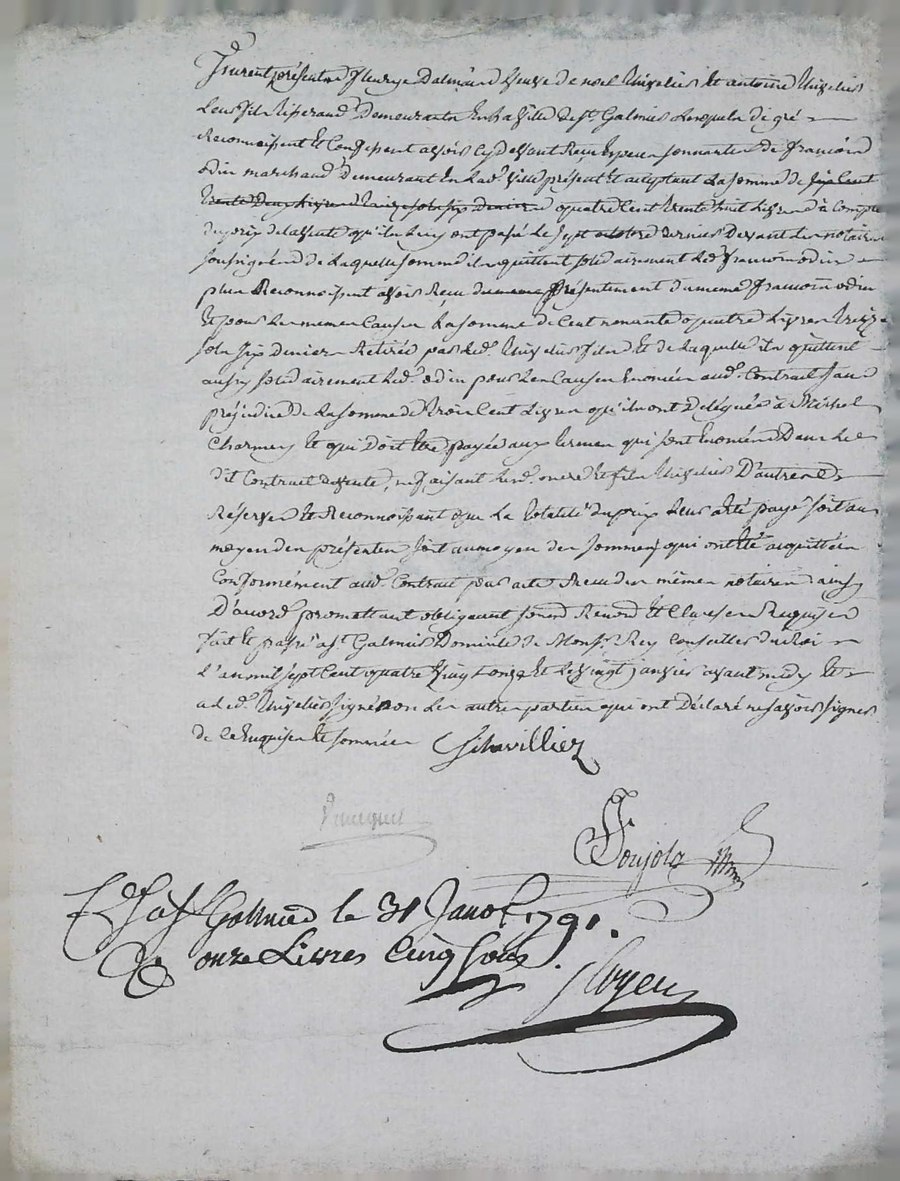 furent présents fleurye Dalmand veuve de noel et antoine
Leur fils Tisserand Demeurants En la ville de st. Galmier Lesquels de gré
Reconnoissent et Confessent avoir cy devant Reçu En espèces sonnantes de françois
odin marchand Demeurant En Lad. ville présent et acceptant La somme de six Cent
trente Deux Livres treize sols six deniers quatre Cent trente huit Livres à Compte
du prix de la vente qu'ils Luy ont passé Le sept octobre dernier Devant Les notaires
soussignés de Laquelle somme ils quittent solidairement Led. françois odin
plus Reconnoissent avoir Reçu présentement du meme françois odin
Et pour Les memes Causes La somme de Cent nonante quatre Livres treize
sols six deniers Retirés par Led. fils et de Laquelle ils quittent
aussy solidairement Led. odin pour Les Causes Enoncées aud. Contrat sans
préjudice de La somme de trois Cent Livres qu'ils ont Deléguée à Michel
Charmey Et qui Doit Etre payée aux termes qui sont Enoncés Dans Le
dit Contrat de vente, ne faisant Lesd. mere et fils D'autres
Réserves Et Reconnoissant que La totalité du prix Leur a été payé soit au
moyen des présentes soit au moyen des sommes qui ont été acquittées
Conformément aud. Contrat par acte Recu des mêmes notaires ainsy
D'acord promettant obligeant soumet Renond Et Clauses Requises
fait et passé a st. Galmier Domicile de Monsr. Rey Conseiller du Roi
L'an mil sept Cent quatre vingt onze Et Le vingt janvier avant midy Et
a led. signé non Les autres parties qui ont Déclaré ne savoir signer
de ce Enquises Et sommées
Ponjola
Galmier le 31 Janvr. 1791.
onze Livres Cinq Sous.